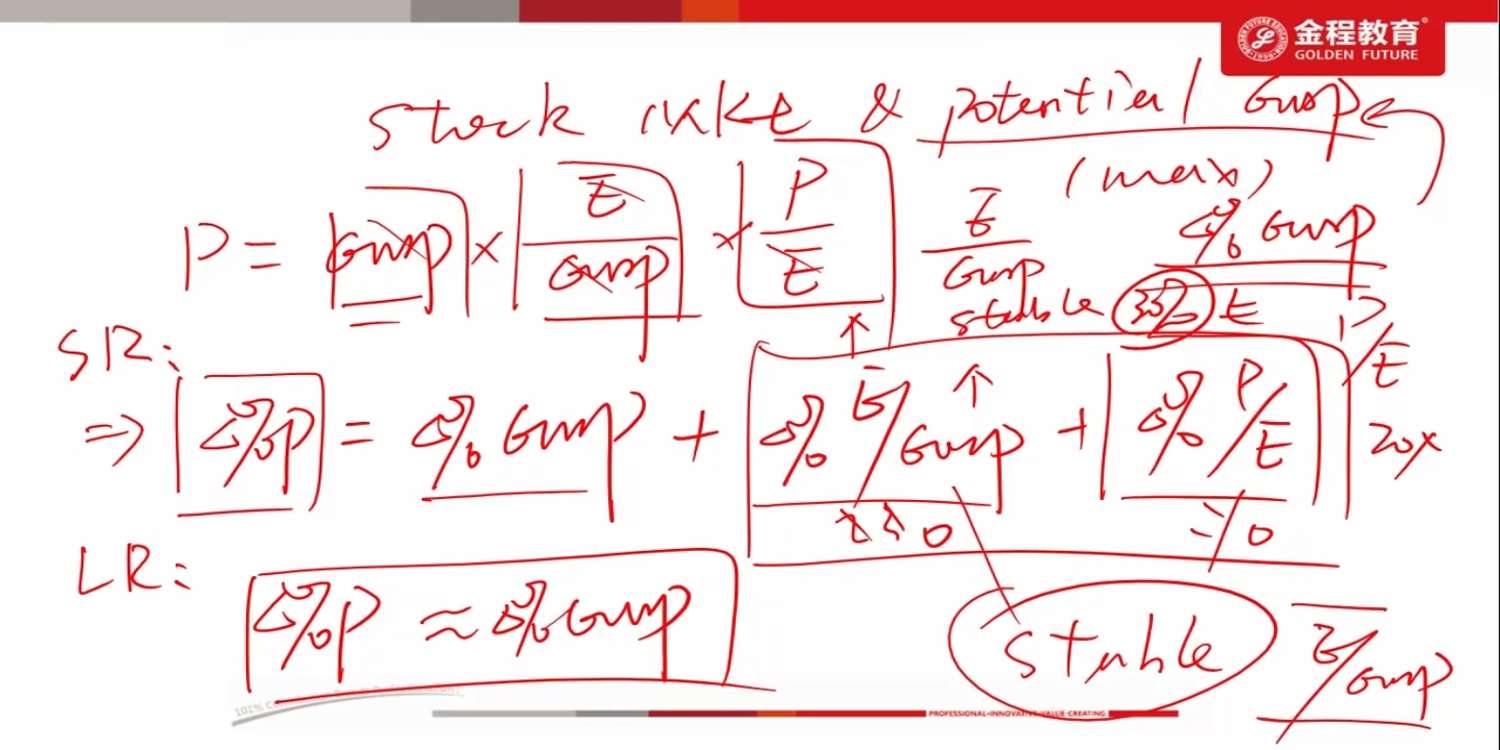 金程教育
GOLDEN FUTURE
Stock mkt & potential GDP
(max)
P = GDP × E/GDP × P/E
E/GDP
stable
%GDP
E
P/E
20x
SR:
⇒ %P = %GDP + % E/GDP + % P/E
0
0
LR:
%P ≈ %GDP
stable
E/GDP
PROFESSIONAL·INNOVATIVE·VALUE-CREATING